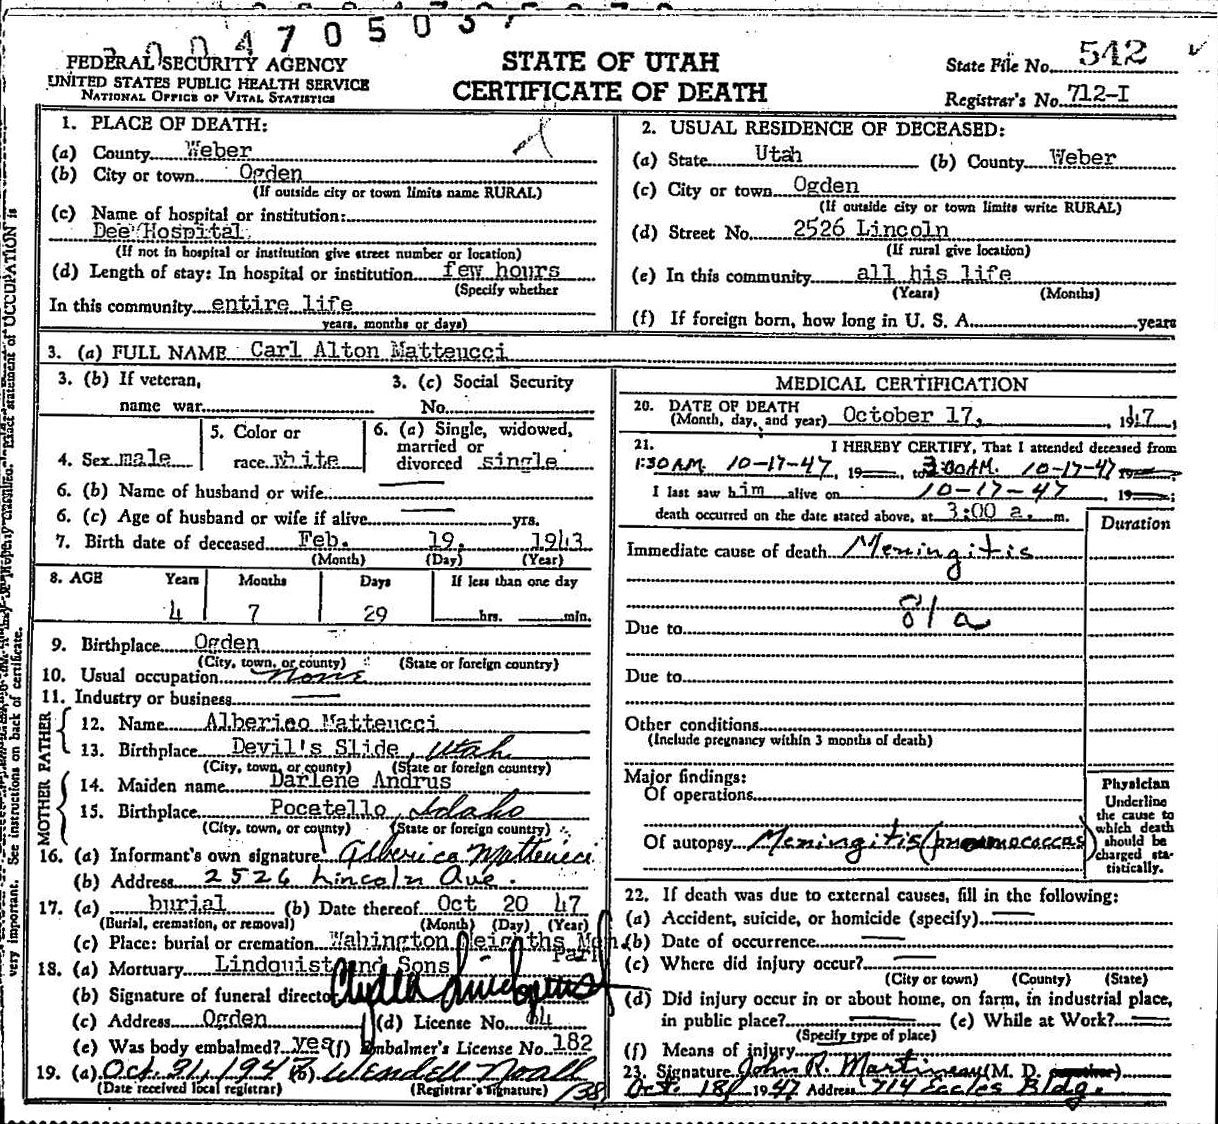 004705037
FEDERAL SECURITY AGENCY
UNITED STATES PUBLIC HEALTH SERVICE
NATIONAL OFFICE OF VITAL STATISTICS
STATE OF UTAH
CERTIFICATE OF DEATH
State File No. 542
Registrar's No. 712-I
1. PLACE OF DEATH:
(a) County Weber
(b) City or town Ogden
(If outside city or town limits name RURAL)
(c) Name of hospital or institution:
Dee Hospital
(If not in hospital or institution give street number or location)
(d) Length of stay: In hospital or institution few hours
(Specify whether
In this community entire life
years, months or days)
2. USUAL RESIDENCE OF DECEASED:
(a) State Utah (b) County Weber
(c) City or town Ogden
(If outside city or town limits write RURAL)
(d) Street No. 2526 Lincoln
(If rural give location)
(e) In this community all his life
(Years) (Months)
(f) If foreign born, how long in U. S. A. years
3. (a) FULL NAME Carl Alton Matteucci
3. (b) If veteran,
name war
3. (c) Social Security
No.
4. Sex male
5. Color or
race white
6. (a) Single, widowed,
married or
divorced single
6. (b) Name of husband or wife
6. (c) Age of husband or wife if alive yrs.
7. Birth date of deceased Feb. 19, 1943
(Month) (Day) (Year)
8. AGE Years Months Days If less than one day
4 7 29 hrs. min.
9. Birthplace Ogden
(City, town, or county) (State or foreign country)
10. Usual occupation none
11. Industry or business
FATHER
12. Name Alberico Matteucci
13. Birthplace Devil's Slide, Utah
(City, town, or county) (State or foreign country)
MOTHER
14. Maiden name Darlene Andrus
15. Birthplace Pocatello, Idaho
(City, town, or county) (State or foreign country)
16. (a) Informant's own signature Alberico Matteucci
(b) Address 2526 Lincoln Ave.
17. (a) burial (b) Date thereof Oct 20 47
(Burial, cremation, or removal) (Month) (Day) (Year)
(c) Place: burial or cremation Wahington Heights Mem.
Park
18. (a) Mortuary Lindquist and Sons
(b) Signature of funeral director
(c) Address Ogden (d) License No. 64
(e) Was body embalmed? yes (f) Embalmer's License No. 182
19. (a) Oct 21, 1947 (b) Wendell Noall
(Date received local registrar) (Registrar's signature) /38
MEDICAL CERTIFICATION
20. DATE OF DEATH
(Month, day, and year) October 17, 1947,
21. I HEREBY CERTIFY, That I attended deceased from
1:30 A.M. 10-17-47, 19 to 3:00 A.M. 10-17-47 19
I last saw him alive on 10-17-47, 19 ;
death occurred on the date stated above, at 3:00 a. m.
Duration
Immediate cause of death Meningitis
81a
Due to
Due to
Other conditions
(Include pregnancy within 3 months of death)
Major findings:
Of operations
Of autopsy Meningitis (pneumococcas)
Physician
Underline
the cause to
which death
should be
charged sta-
tistically.
22. If death was due to external causes, fill in the following:
(a) Accident, suicide, or homicide (specify)
(b) Date of occurrence
(c) Where did injury occur?
(City or town) (County) (State)
(d) Did injury occur in or about home, on farm, in industrial place,
in public place? (e) While at Work?
(Specify type of place)
(f) Means of injury
23. Signature John R. Martineau (M. D.
Oct. 18, 1947 Address 714 Eccles Bldg.
very important. See instructions on back of certificate.
be properly classified. Exact statement of OCCUPATION is